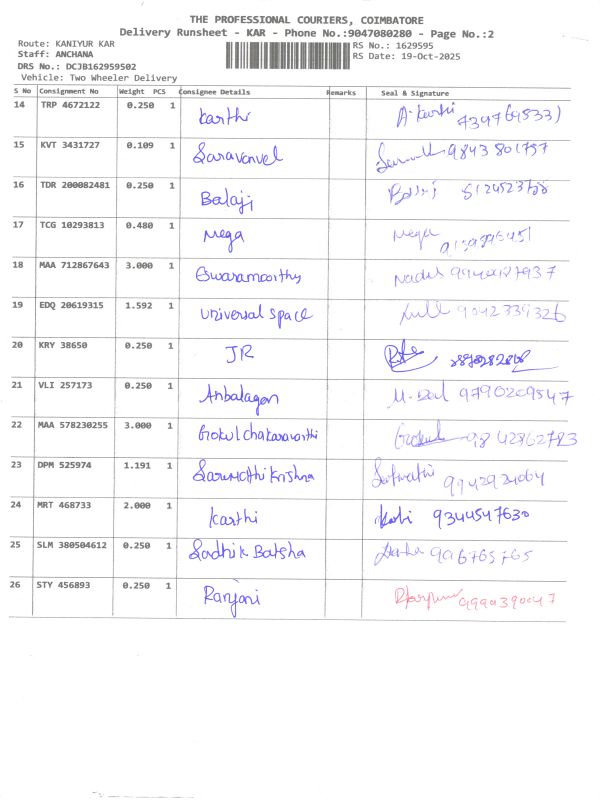 THE PROFESSIONAL COURIERS, COIMBATORE
Delivery Runsheet - KAR - Phone No.:9047080280 - Page No.:2
Route: KANIYUR KAR RS No.: 1629595
Staff: ANCHANA RS Date: 19-Oct-2025
DRS No.: DCJB162959502
Vehicle: Two Wheeler Delivery
S No Consignment No Weight PCS Consignee Details Remarks Seal & Signature
14 TRP 4672122 0.250 1 Karthi
15 KVT 3431727 0.109 1 Saravanvel 9843801757
16 TDR 200082481 0.250 1 Balaji
17 TCG 10293813 0.480 1 Mega Mega
18 MAA 712867643 3.000 1 Eswaramoorthy
19 EDQ 20619315 1.592 1 Universal space 9042339326
20 KRY 38650 0.250 1 JR
21 VLI 257173 0.250 1 Anbalagan 9790209547
22 MAA 578230255 3.000 1 Gokul chakaravarthi Gokul 9842862783
23 DPM 525974 1.191 1 Sarumathi Krishna
24 MRT 468733 2.000 1 Karthi 9344547630
25 SLM 380504612 0.250 1 Sadhik Batsha
26 STY 456893 0.250 1 Ranjani